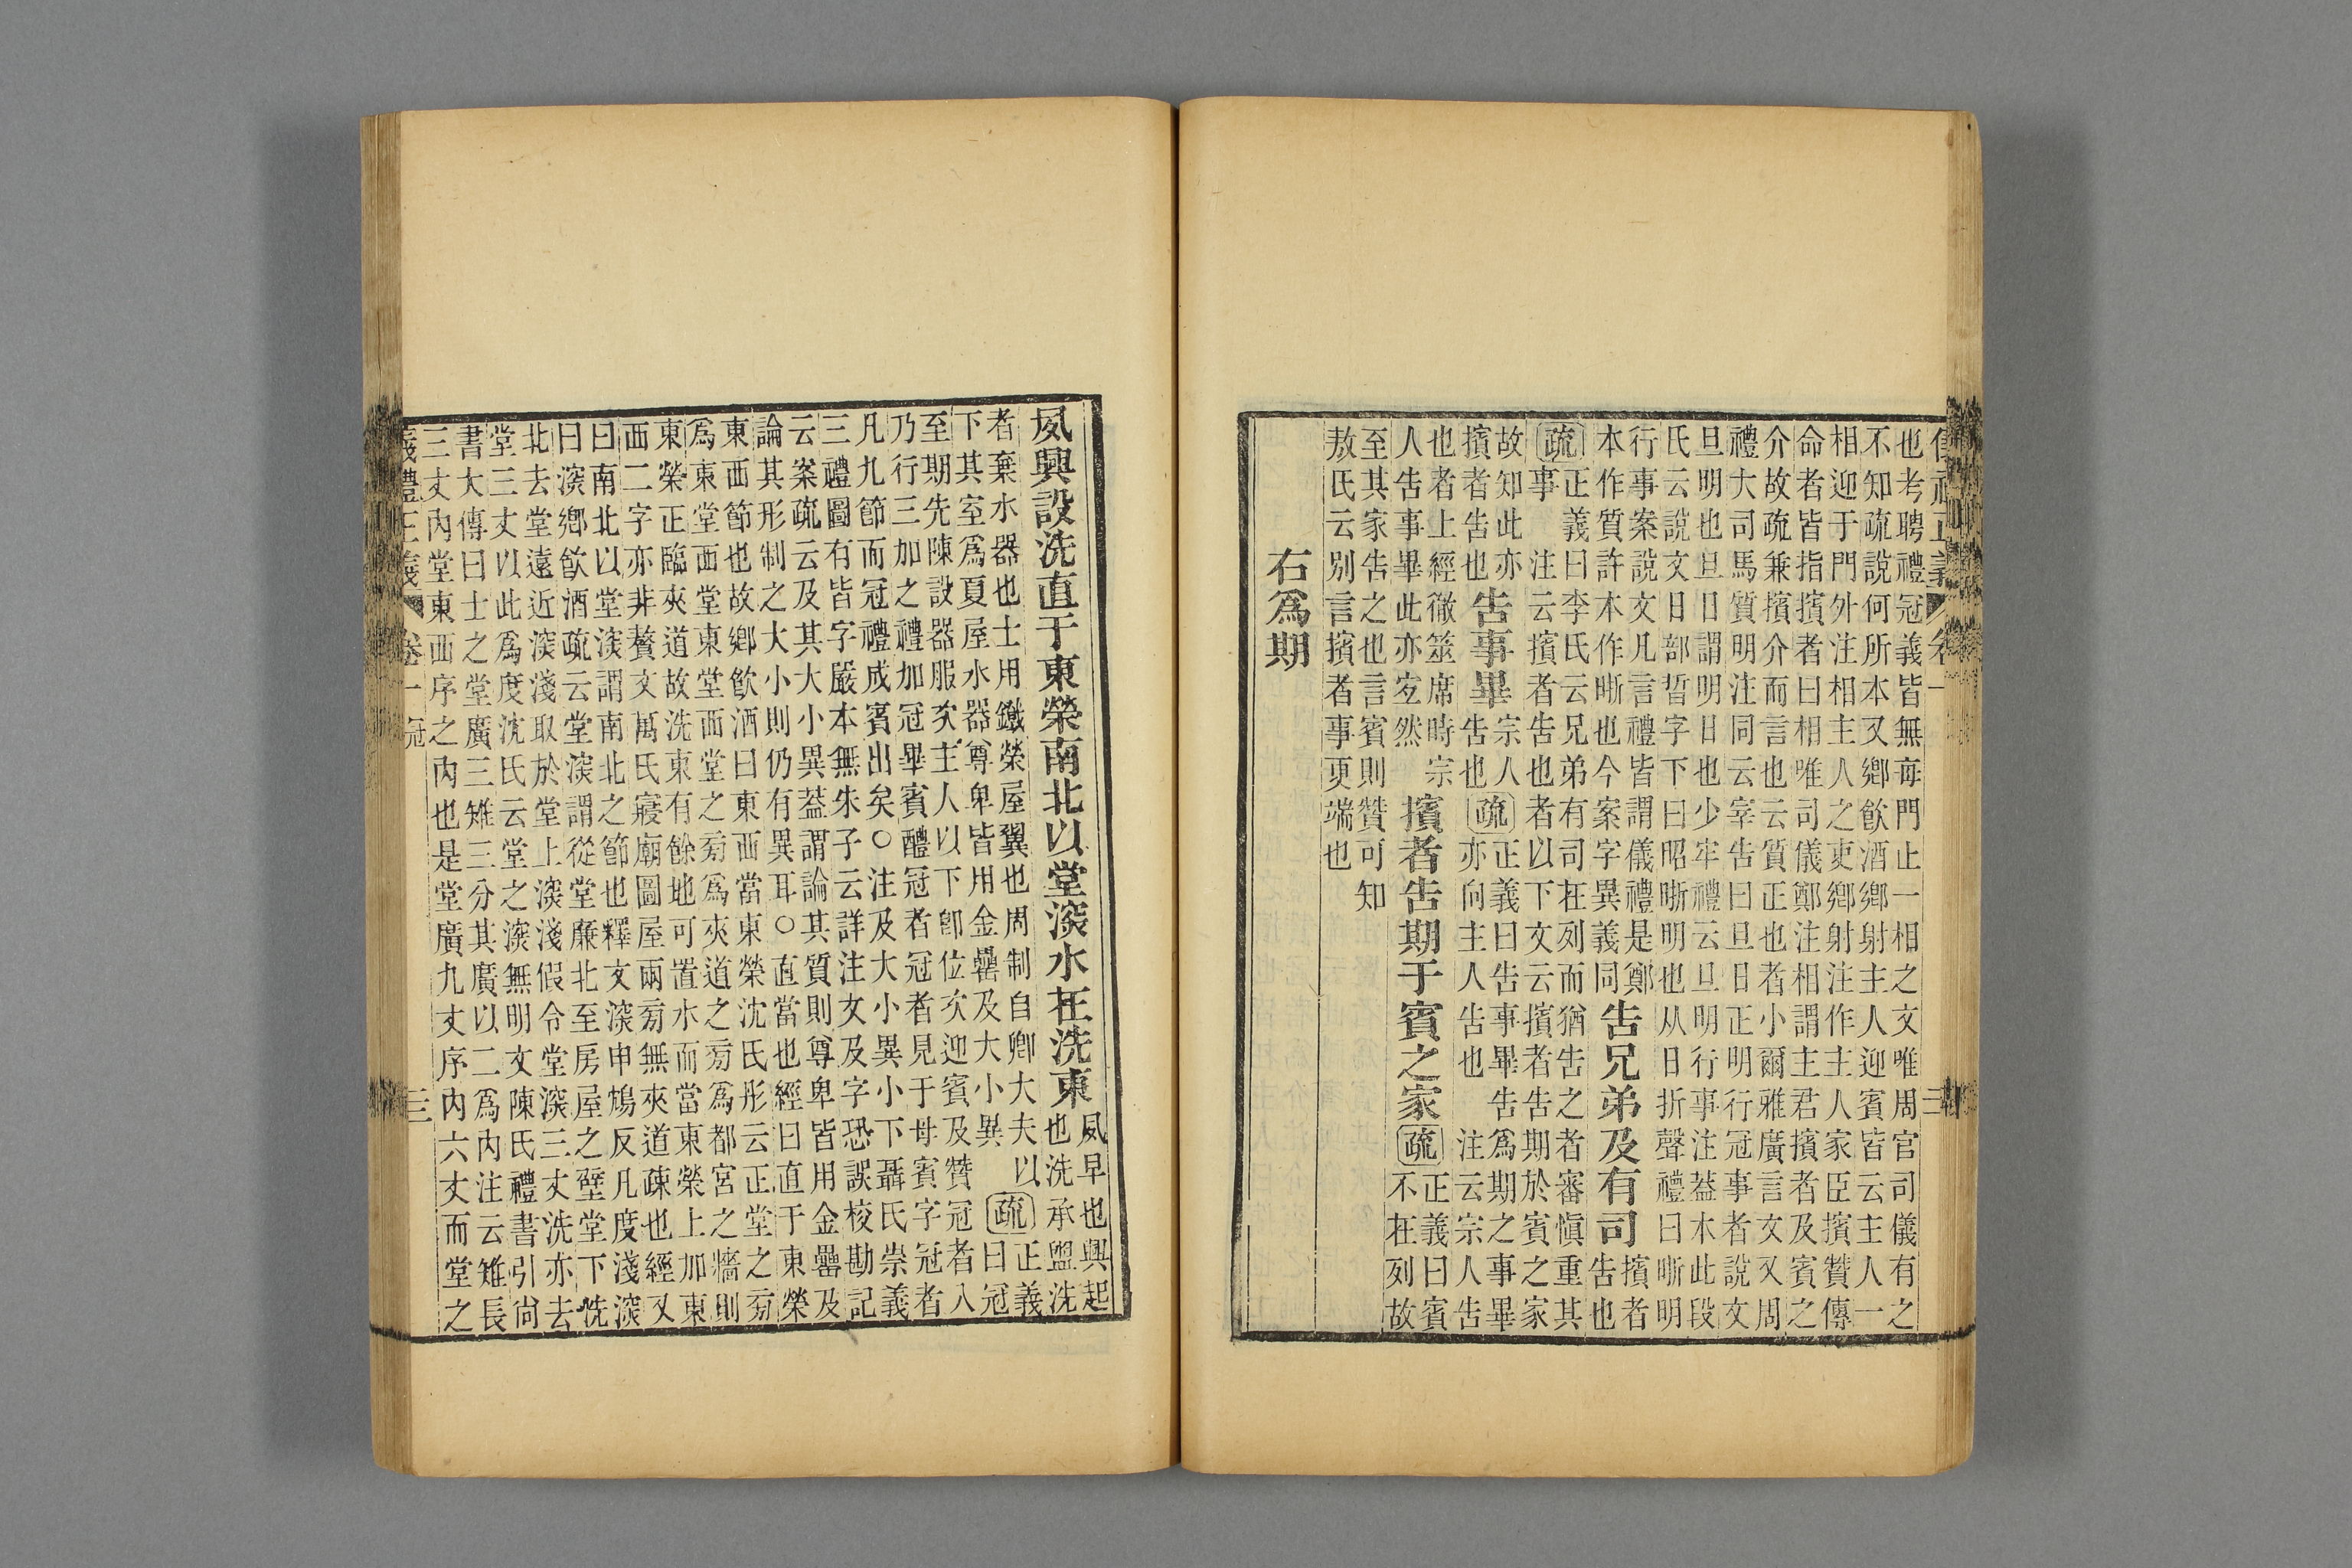 也考聘禮冠義皆無每門止一相之文唯周官司儀有之
不知疏說何所本又鄉飲酒鄉射主人迎賓皆云主人一
相迎于門外注相主人之吏鄉射注作主人家臣擯贊傳
命者皆指擯者曰相唯司儀鄭注相謂主君擯者及賓之
介故疏兼擯介而言也云質正也者小爾雅廣言文又周
禮大司馬質明注同云宰告曰旦日正明行冠事者說文
旦明也旦日謂明日也少牢禮云旦明行事注葢木此段
氏云說文日部晢字下曰昭晣明也从日折聲禮曰晣明
行事案說文凡言禮皆謂儀禮是鄭
本作質許本作晣也今案字異義同
告兄弟及有司
擯者
告也
疏
正義曰李氏云兄弟有司在列而猶告之者審愼重其
事 注云擯者告也者以下文云擯者告期於賓之家
故知此亦
擯者告也
告事畢
宗人
告也
疏
正義曰告事畢告爲期之事畢
亦向主人告也 注云宗人告
也者上經徹筮席時宗
人告事畢此亦宐然
擯者告期于賓之家
疏
正義曰賓
不在列故
至其家告之也言賓則贊可知
敖氏云別言擯者事更端也
右爲期
夙興設洗直于東榮南北以堂深水在洗東
夙早也興起
也洗承盥洗
者棄水器也士用鐵榮屋翼也周制自卿大夫以
下其室爲夏屋水器尊卑皆用金罍及大小異
疏
正義
曰冠
至期先陳設器服次主人以下卽位次迎賓及贊冠者入
乃行三加之禮加冠畢賓醴冠者冠者見于母賓字冠者
凡九節而冠禮成賓出矣○注及大小異小下聶氏崇義
三禮圖有皆字嚴本無朱子云詳注文及字恐誤校勘記
云案疏云及其大小異葢謂論其質則尊卑皆用金罍及
論其形制之大小則仍有異耳○直當也經曰直于東榮
東西節也故鄉飲酒曰東西當東榮沈氏彤云正堂之旁
爲東堂西堂東堂西堂之旁爲夾道之旁爲都宮之牆則
東榮正臨夾道故洗東有餘地可置水而當東榮上加東
西二字亦非贅文萬氏寢廟圖屋兩旁無夾道疎也經又
曰南北以堂深謂南北之節也釋文深申鴆反凡度淺深
曰深鄉飲酒疏云堂深謂從堂廉北至房屋之壁堂下洗
北去堂遠近深淺取於堂上深淺假令堂深三丈洗亦去
堂三丈以此爲度沈氏云堂之深無明文陳氏禮書引尙
書大傳曰士之堂廣三雉三分其廣以二爲內注云雉長
三丈內堂東西序之內也是堂廣九丈序內六丈而堂之
儀禮正義 卷一 冠